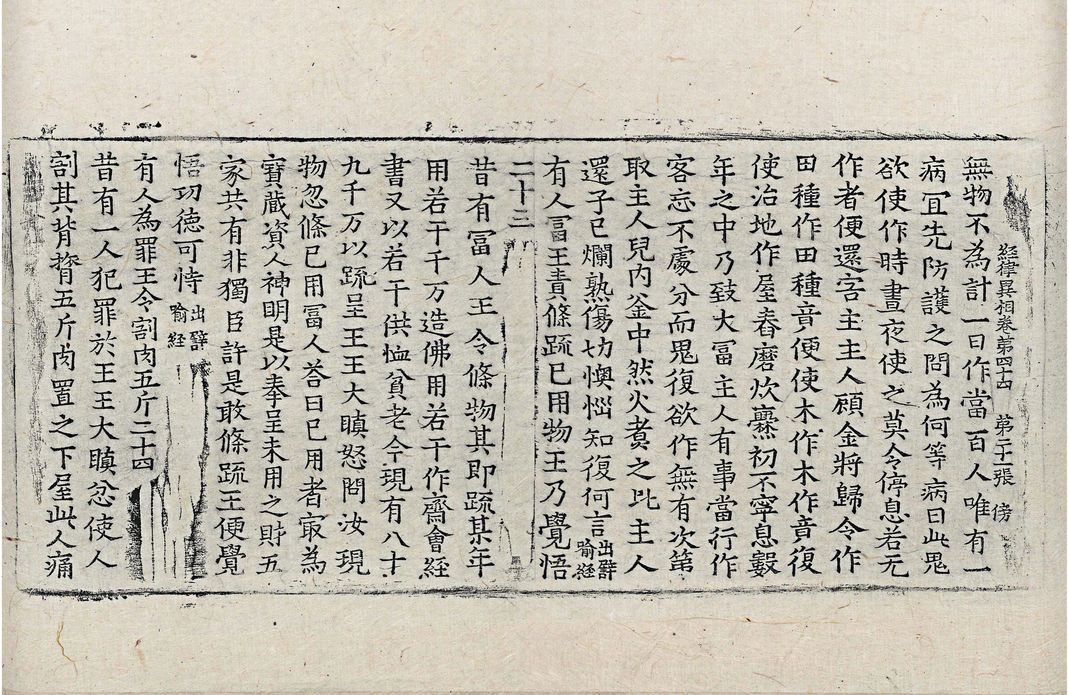 無物不為計一日作當百人唯有一
經律異相卷第四十四 第二十二張 傍
病冝先防護之問為何等病曰此鬼
欲使作時晝夜使之莫令停息若无
作者便還害主主人顧金將歸令作
田種作田種竟便使木作木作竟復
使治地作屋舂磨炊爨初不寧息數
年之中乃致大冨主人有事當行作
客忘不處分而鬼復欲作無有次第
取主人兒內釜中然火煑之比主人
還子已爛熟傷切懊惱知復何言出譬喻経
有人冨王責條疏已用物王乃覺悟
二十三
昔有冨人王令條物其即疏某年
用若干千万造佛用若干作齋會経
書又以若干供恤貧老今現有八十
九千万以疏呈王王大瞋怒問汝現
物忽條已用冨人荅曰已用者㝡為
寶藏資人神明是以奉呈未用之財五
家共有非獨臣許是敢條疏王便覺
悟功德可恃出譬喻経
有人為罪王令割肉五斤二十四
昔有一人犯罪於王王大瞋忿使人
割其背膂五斤肉置之下屋此人痛